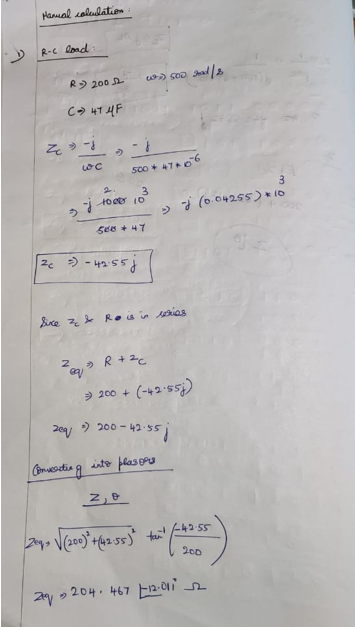 Manual calculation:
1) R-C load:
R ⇒ 200 Ω    ω ⇒ 500 rad/s
C ⇒ 47 μF
Zc ⇒ -j/ωC ⇒ -j/(500 * 47 * 10^-6)
⇒ -j 1000 2 10^3/(500 * 47) ⇒ -j (0.04255) * 10^3
Zc ⇒ -42.55 j
Since Zc & R is in series
Zeq ⇒ R + Zc
⇒ 200 + (-42.55j)
Zeq ⇒ 200 - 42.55 j
Converting into phasors
Z, θ
Zeq ⇒ √((200)² + (42.55)²) tan⁻¹(-42.55/200)
Zeq ⇒ 204.467 ∠-12.011° Ω